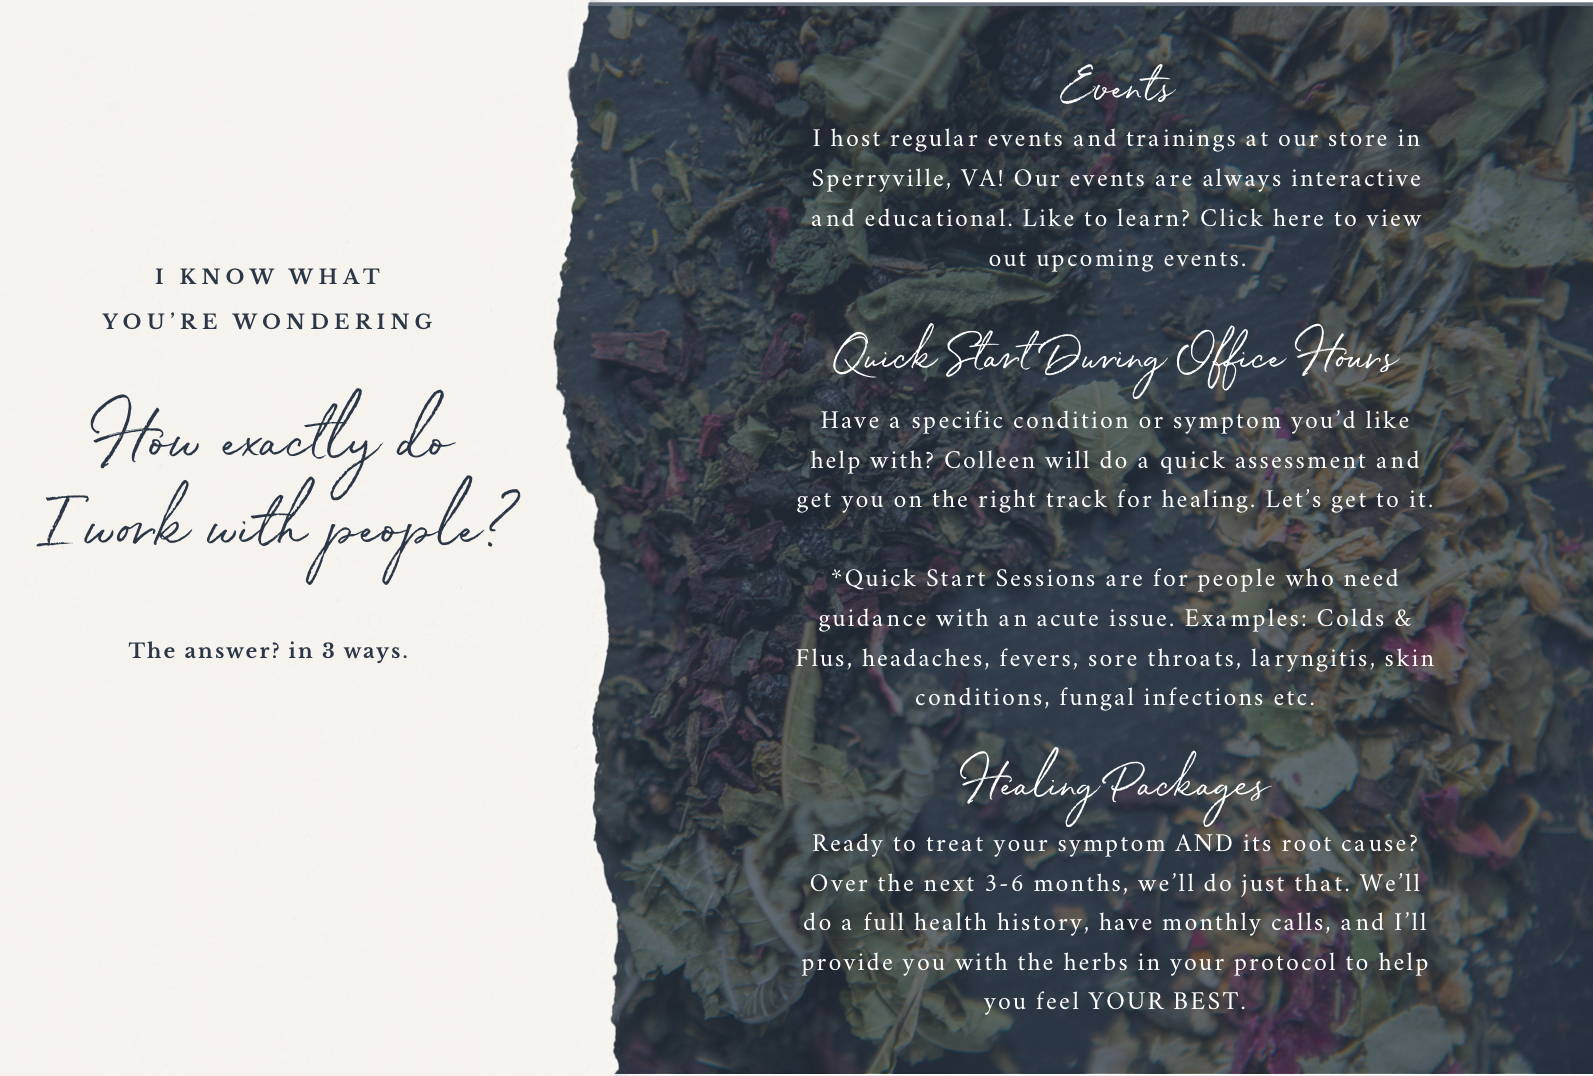 I KNOW WHAT
YOU’RE WONDERING
How exactly do
I work with people?
The answer? in 3 ways.
Events
I host regular events and trainings at our store in
Sperryville, VA! Our events are always interactive
and educational. Like to learn? Click here to view
out upcoming events.
Quick Start During Office Hours
Have a specific condition or symptom you’d like
help with? Colleen will do a quick assessment and
get you on the right track for healing. Let’s get to it.
*Quick Start Sessions are for people who need
guidance with an acute issue. Examples: Colds &
Flus, headaches, fevers, sore throats, laryngitis, skin
conditions, fungal infections etc.
Healing Packages
Ready to treat your symptom AND its root cause?
Over the next 3-6 months, we’ll do just that. We’ll
do a full health history, have monthly calls, and I’ll
provide you with the herbs in your protocol to help
you feel YOUR BEST.